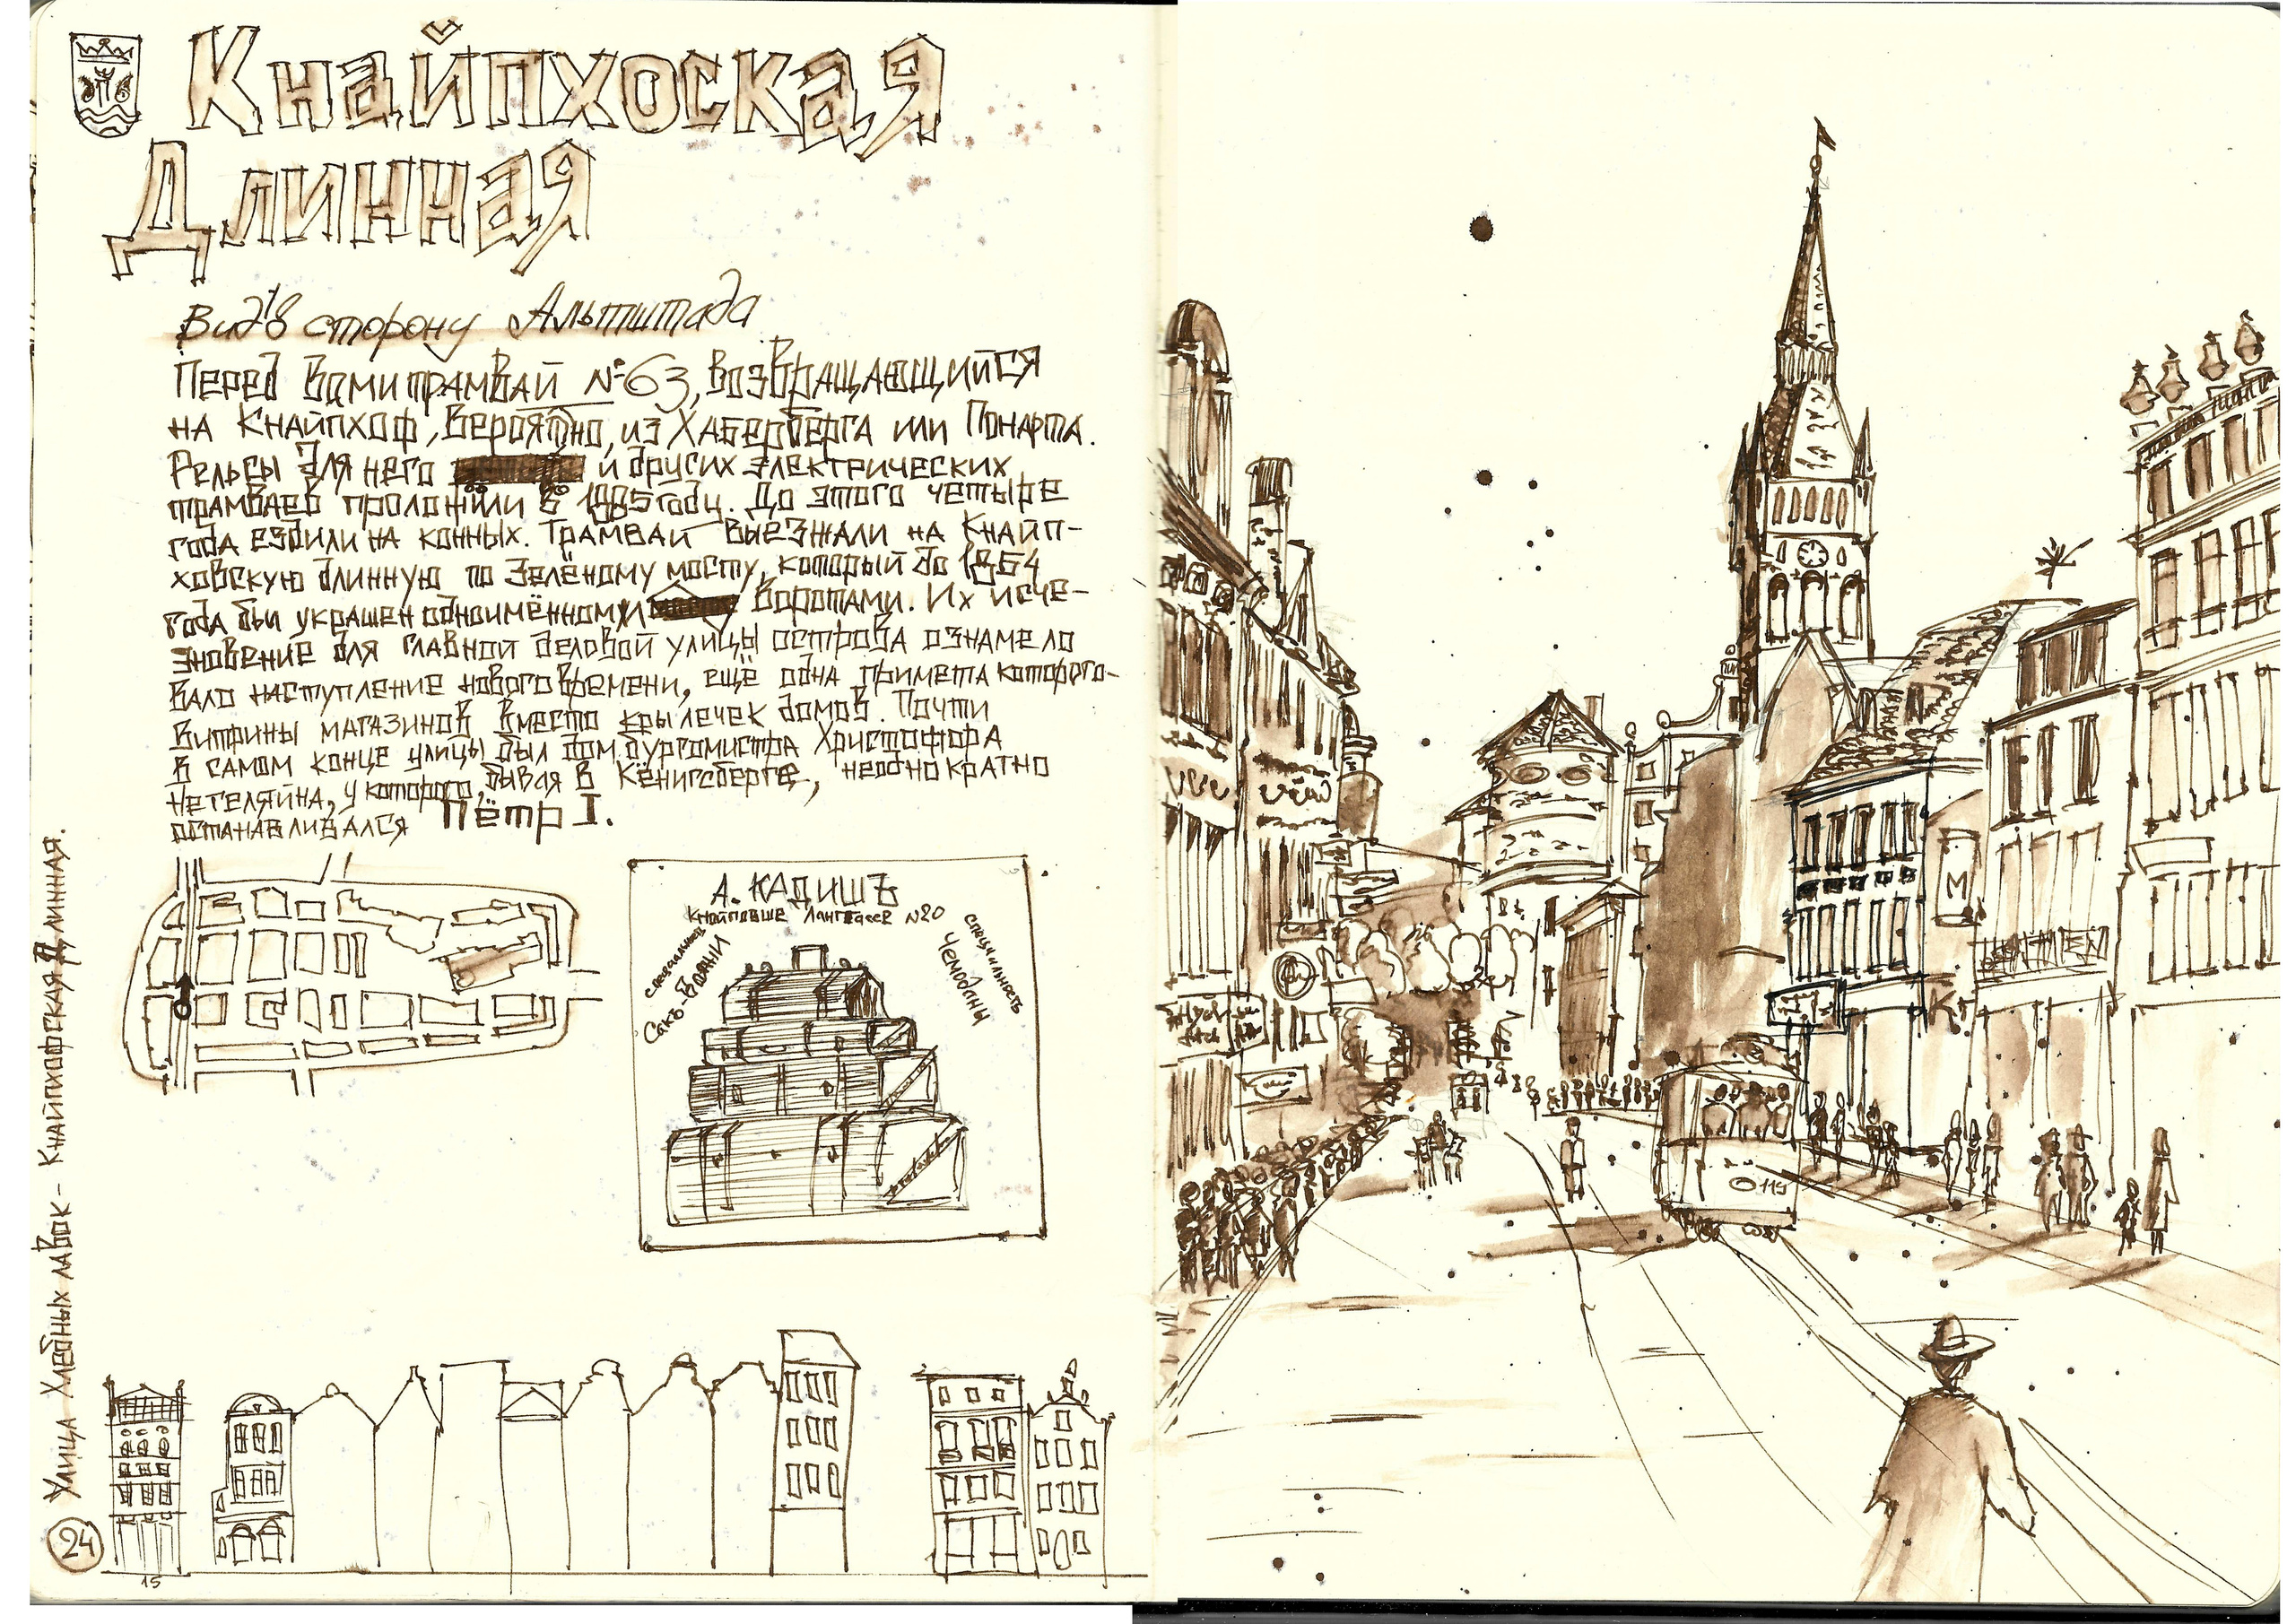 Кнайпхоская
Длинная
Вид в сторону Альтштада
Перед Вами трамвай №63, возвращающийся
на Кнайпхоф, вероятно, из Хаберберга или Понарта.
Рельсы для него и других электрических
трамваев проложили в 1885 году. До этого четыре
года ездили на конных. Трамваи выезжали на Кнайп-
ховскую длинную по Зелёному мосту, который до 1864
года был украшен одноимёнными воротами. Их исче-
зновение для главной деловой улицы острова ознамено
вало наступление нового времени, ещё одна примета которого-
витрины магазинов вместо крылечек домов. Почти
в самом конце улицы был дом бургомистра Христофора
Негеляйна, у которого, бывая в Кёнигсберге, неоднократно
останавливался Пётр I.
А. КАДИШЪ
Лангассе №20
специальность
Сакъ-вояжи
специальность
Чемоданы
Улица Хлебных лавок - Кнайпхофская Длинная.
24
15
M
K
115